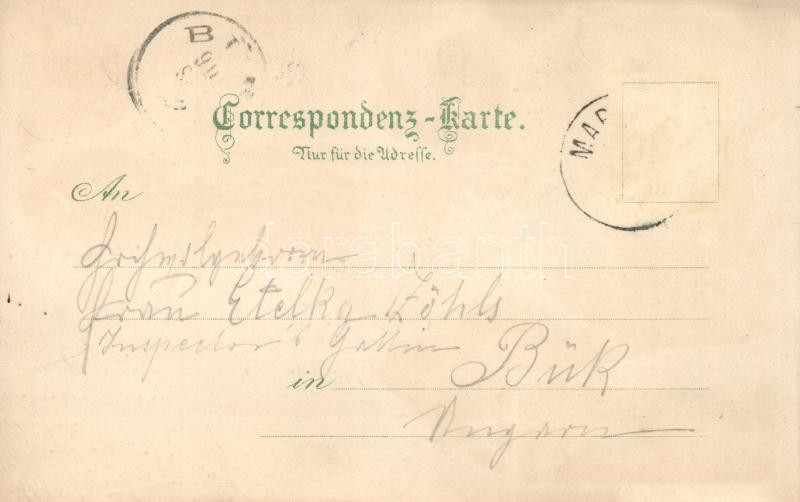 Correspondenz-Karte.
Nur für die Adresse.
MAR
An
Hochwolgeboren
Frau Etelka Zöhls
Inspector's Gattin
in Bük
Ungarn
darabanth